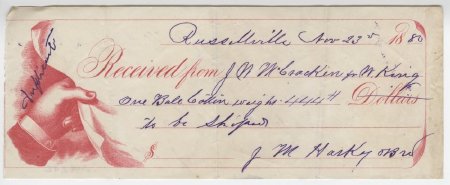 Russellville Nov 23d 1880
Received from J W McCracken for W. King
One Bale Cotton weight 444 # Dollars
to be Shiped
$ J M Harkey & Bro